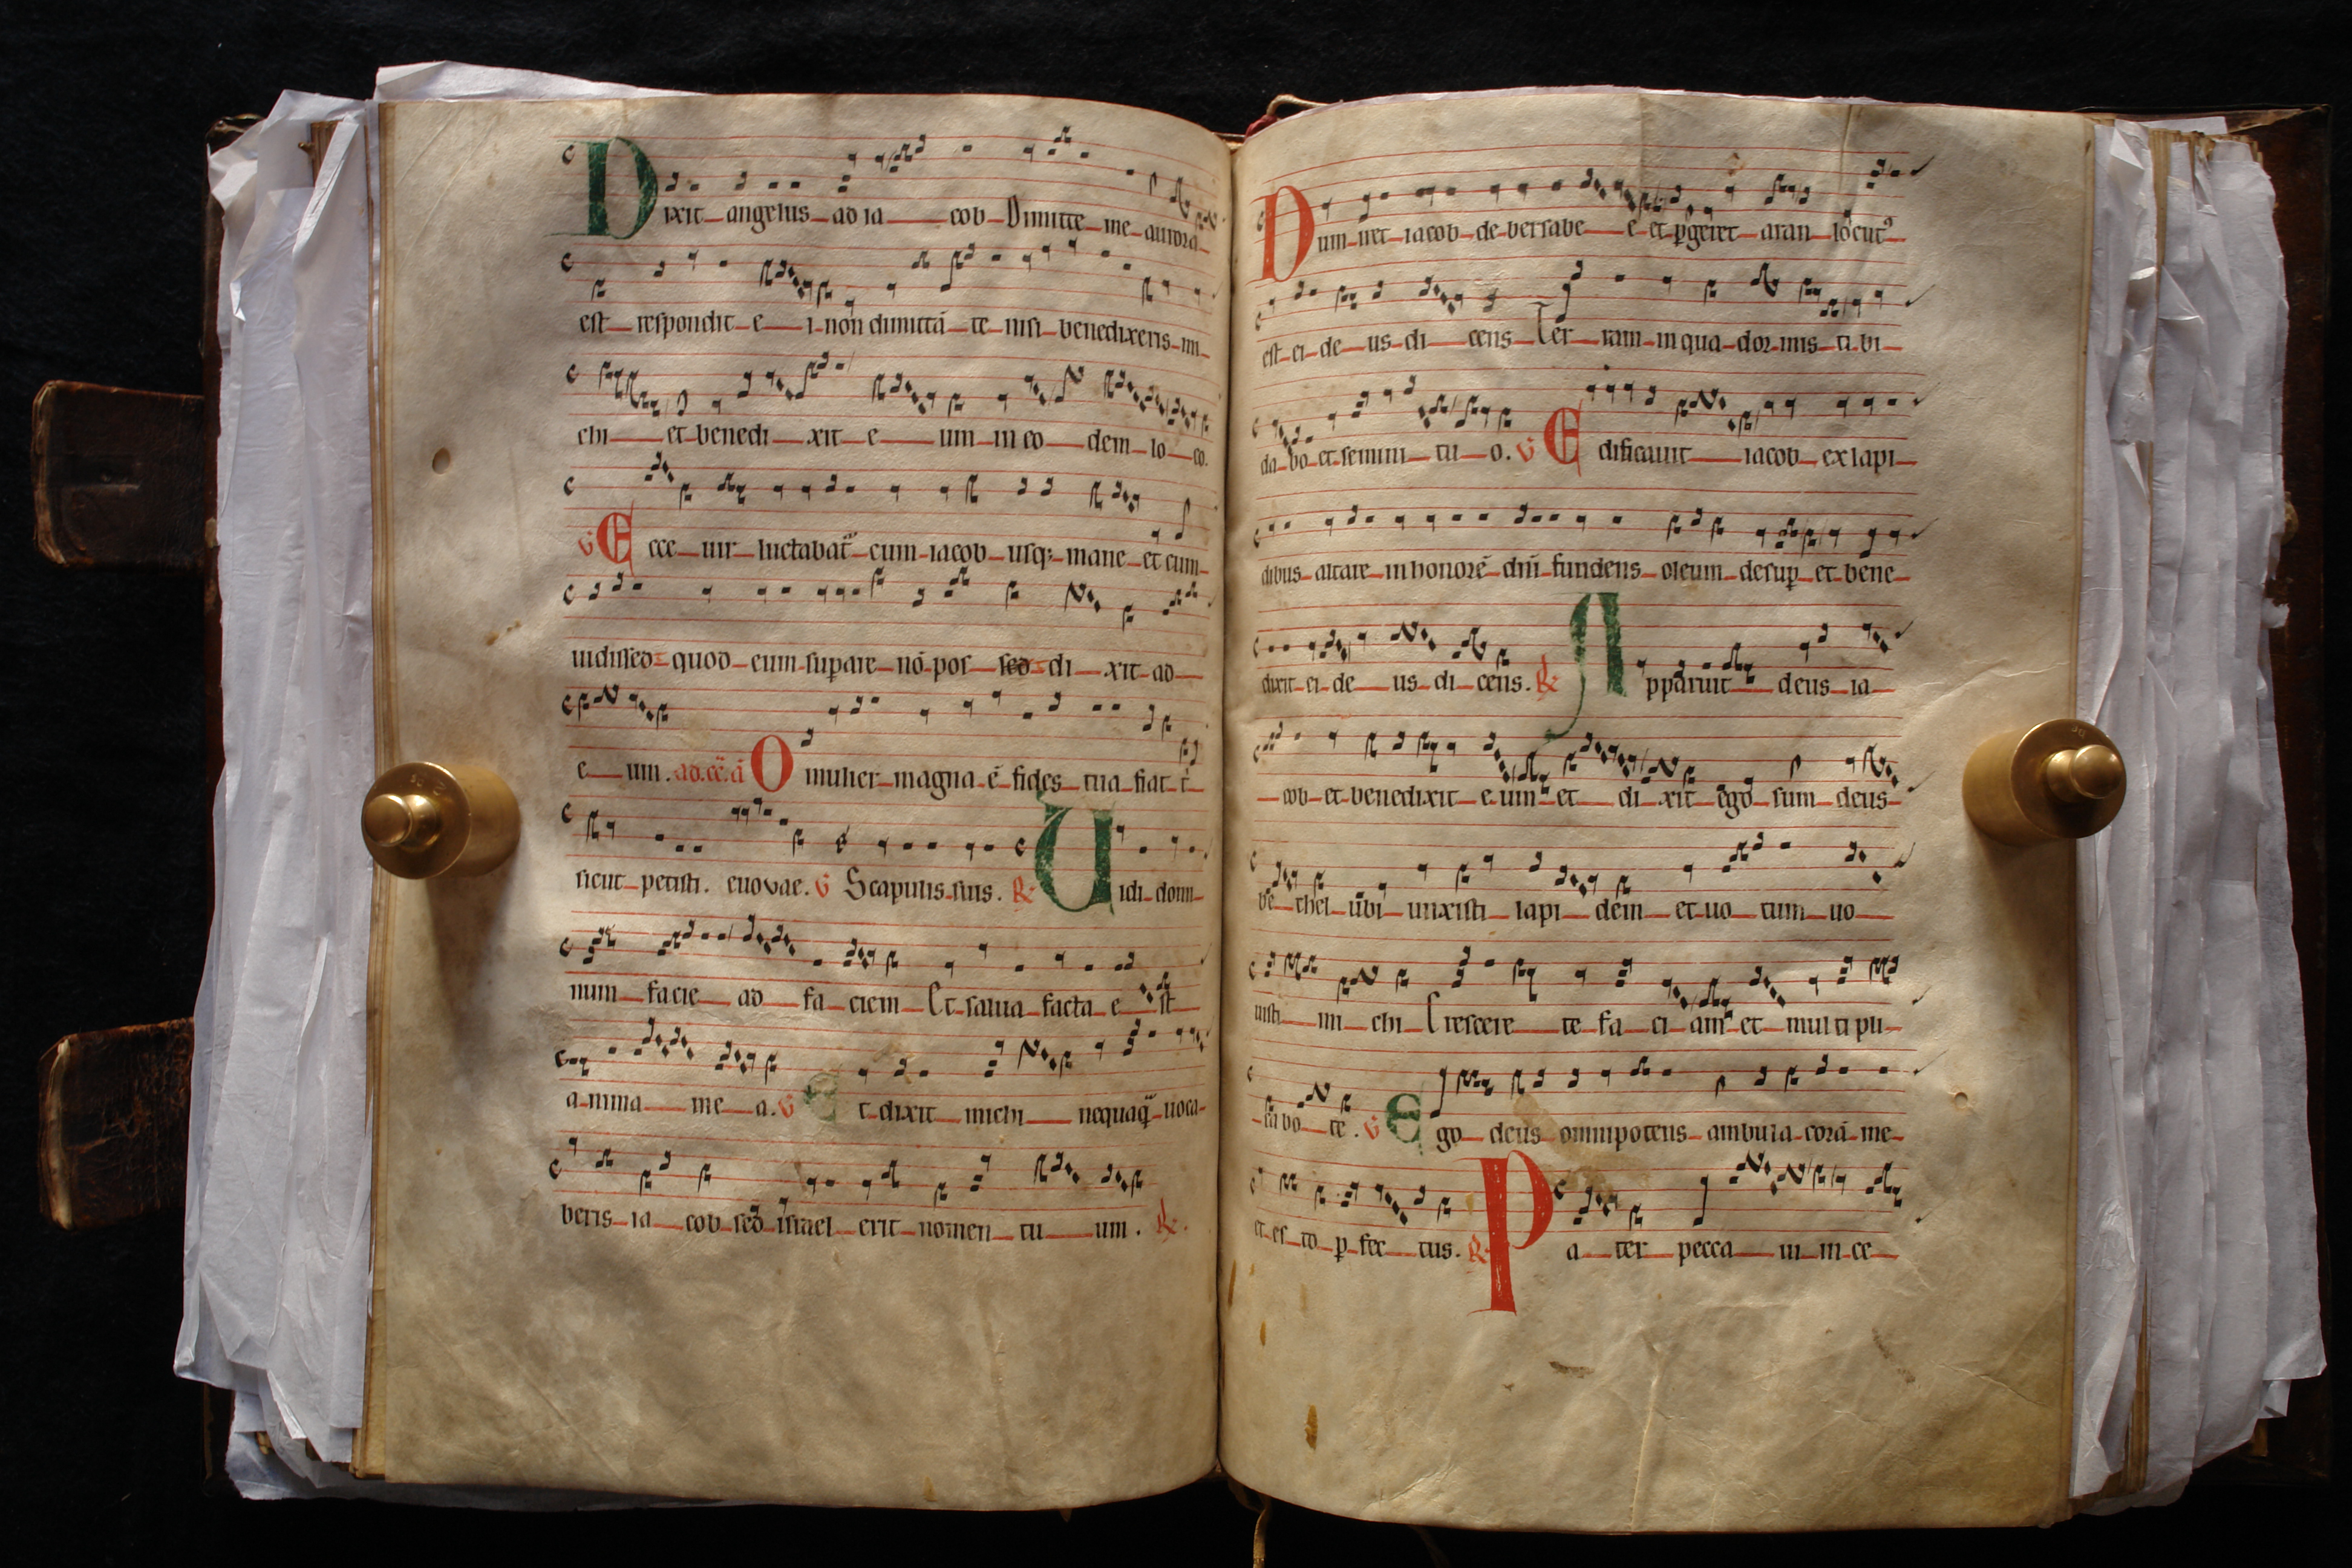 Dixit angelus ad iacob Dimitte me aurora
est respondit ei non dimittā te nisi benedixeris mi
chi et benedixit eum in eodem loco.
V Ecce uir luctabat᷑ cum iacob usq; mane et cum
uidissed quod eum supare nō pos sed dixit ad
eum. ad.cē.ā O mulier magna ē fides tua fiat t
sicut petisti. euovae. V Scapulis suis. R Uidi domi
num facie ad faciem Et salua facta est
anima mea. V Et dixit michi nequaq̄ uoca
beris iacob sed israel erit nomen tuum. R.
Dum iret iacob de bersabee et pgeret aran locut᷒
est ei deus dicens Terram in qua dormis tibi
dabo et semini tuo. V Edificauit iacob ex lapi
dibus altare in honorē dn̄i fundens oleum desup et bene
dixit ei deus dicens. R Apparuit deus ia
cob et benedixit eum et dixit ego sum deus
bethel ubi unxisti lapidem et uotum uo
uisti michi Crescere te faciam et multipli
cabo te. V Ego deus omnipotens ambula corā me
et esto pfectus. R Pater peccaui in ce